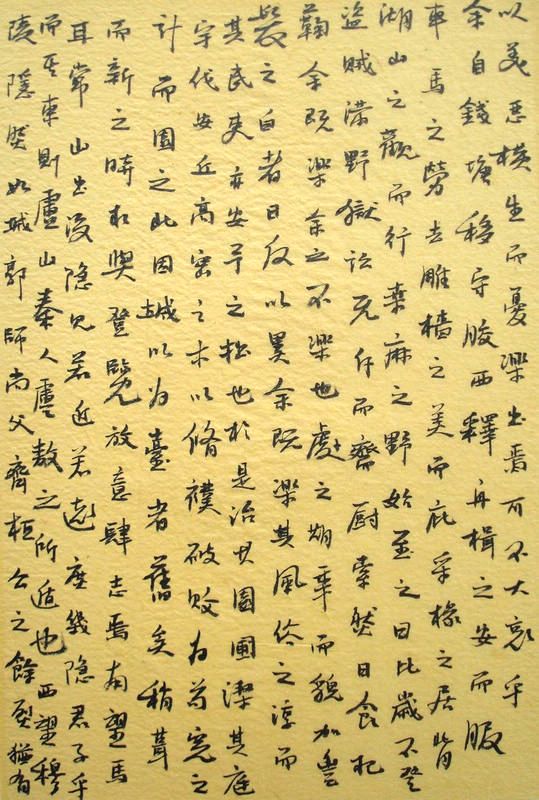 以美惡橫生而憂樂出焉可不大哀乎
余自錢塘移守膠西釋舟楫之安而服
車馬之勞去雕牆之美而庇采椽之居背
湖山之觀而行桑麻之野始至之日比歲不登
盜賊滿野獄訟充斥而齋廚索然日食杞
鞠余既樂余之不樂也處之期年而貌加豐
髮之白者日反以黑余既樂其風俗之淳而
其民吏亦安予之拙也於是治其園圃潔其庭
宇伐安丘高密之木以脩補破敗為苟完之
計而園之北因城以為臺者舊矣稍葺
而新之時相與登覽放意肆志焉南望馬
耳常山出沒隱見若近若遠庶幾隱君子乎
而其東則盧山秦人盧敖之所遁也西望穆
陵隱然如城郭師尚父齊桓公之餘烈猶有